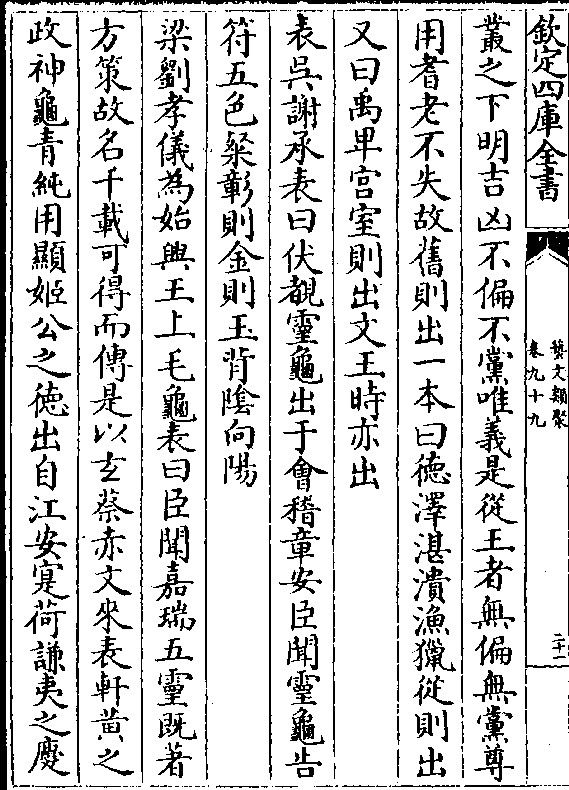 欽定四庫全書
藝文類聚
卷九十九
二十一
叢之下明吉凶不偏不黨唯義是從王者無偏無黨尊
用耆老不失故舊則出一本曰德澤湛漬漁獵從則出
又曰禹卑宮室則出文王時亦出
表吳謝承表曰伏覩靈龜出于會稽章安臣聞靈龜告
符五色粲彰則金則玉背隂向陽
梁劉孝儀為始興王上毛龜表曰臣聞嘉瑞五靈既著
方策故名千載可得而傳是以玄蔡赤文來表軒黄之
政神龜青純用顯姬公之徳出自江安寔荷謙夷之慶